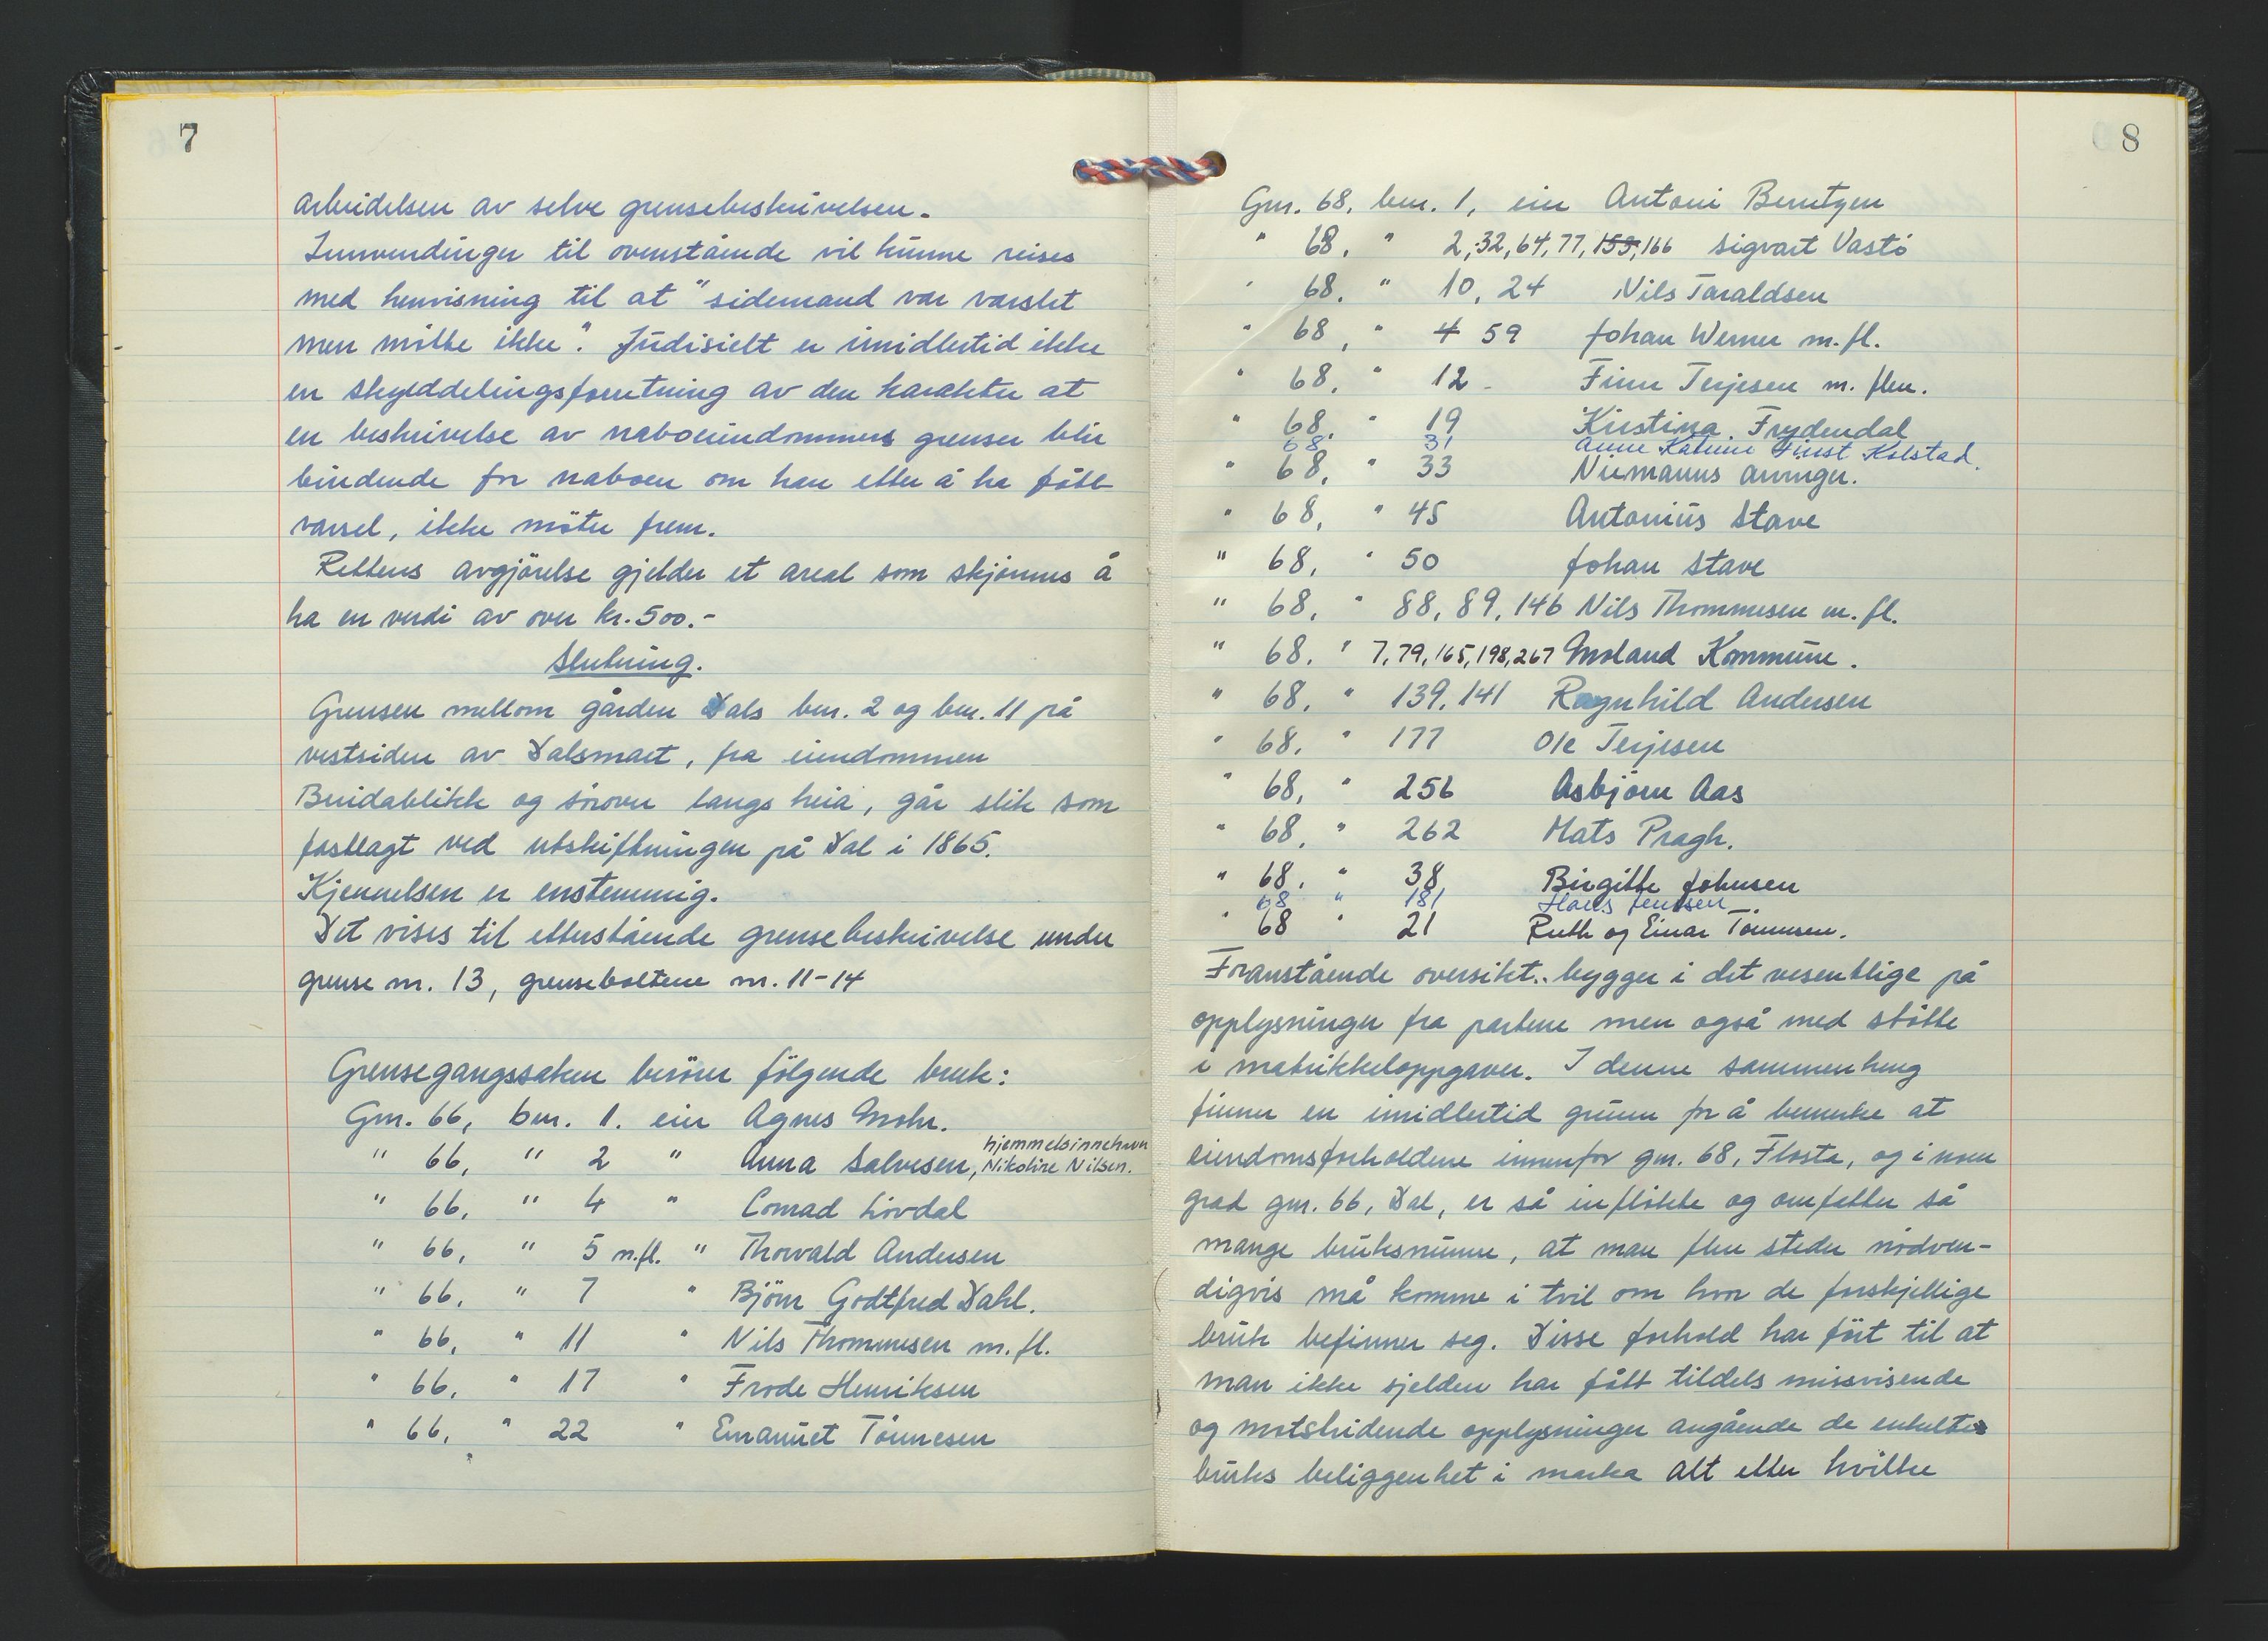 7
arbeidelsen av selve grensebeskrivelsen.
Innvendinger til ovenstående vil kunne reises
med henvisning til at "sidemand var varslet
men møtte ikke". Judisielt er imidlertid ikke
en skylddelingsforretning av den karakter at
en beskrivelse av naboeiendommers grenser blir
bindende for naboen om han etter å ha fått
varsel, ikke møter frem.
Rettens avgjørelse gjelder et areal som skjønnes å
ha en verdi av over kr. 500.-
Slutning.
Grensen mellom gården Dals bnr. 2 og bnr. 11 på
vestsiden av Dalsmaet, fra eiendommen
Breidablikk og sørover langs heia, går slik som
fastlagt ved utskiftningen på Dal i 1865.
Kjennelsen er enstemmig.
Det vises til etterstående grensebeskrivelse under
grense nr. 13, grenseboltene nr. 11-14
Grensegangssaken berører følgende bruk:
Gnr. 66, bnr. 1. eier Agnes Mohr.
" 66, " 2 " Anna Salvesen, hjemmelsinnehaver Nikoline Nilsen.
" 66, " 4 " Conrad Løvdal
" 66, " 5 m.fl. " Thorvald Andersen
" 66, " 7 " Bjørn Godtfred Dahl.
" 66, " 11 " Nils Thommesen m.fl.
" 66, " 17 " Frode Henriksen
" 66, " 22 " Emanuel Tønnesen
8
Gnr. 68, bnr. 1, eier Antoni Berntzen
" 68, " 2, 32, 64, 77, 153, 166 Sigvart Vastø
" 68, " 10, 24 Nils Taraldsen
" 68, " 4 59 Johan Werner m.fl.
" 68, " 12 - Finn Terjesen m. flere.
" 68, " 19 Kristina Frydendal
68 31 Anne Katrine Kolstad.
" 68, " 33 Niemanns arvinger.
" 68, " 45 Antonius Stave
" 68, " 50 Johan Stave
" 68, " 88, 89, 146 Nils Thommesen m.fl.
" 68, " 7, 79, 165, 198, 267 Moland Kommune.
" 68, " 139, 141 Ragnhild Andersen
" 68, " 177 Ole Terjesen
" 68, " 256 Asbjørn Aas
" 68, " 262 Mats Pragh.
" 68, " 38 Birgitte Johnsen
68 " 181 Hans Jenssen
" 68 " 21 Ruth og Einar Tønnesen.
Franstående oversikt bygger i det vesentlige på
opplysninger fra partene men også med støtte
i matrikkeloppgaver. I denne sammenheng
finner en imidlertid grunn for å bemerke at
eiendomsforholdene innenfor gnr. 68, Flosta, og i noen
grad gnr. 66, Dal, er så innfløkte og omfatter så
mange bruksnumre, at man flere steder nødven-
digvis må komme i tvil om hvor de forskjellige
bruk befinner seg. Disse forhold har ført til at
man ikke sjelden har fått tildels missvisende
og motstridende opplysninger angående de enkelte
bruks beliggenhet i marka alt etter hvilke